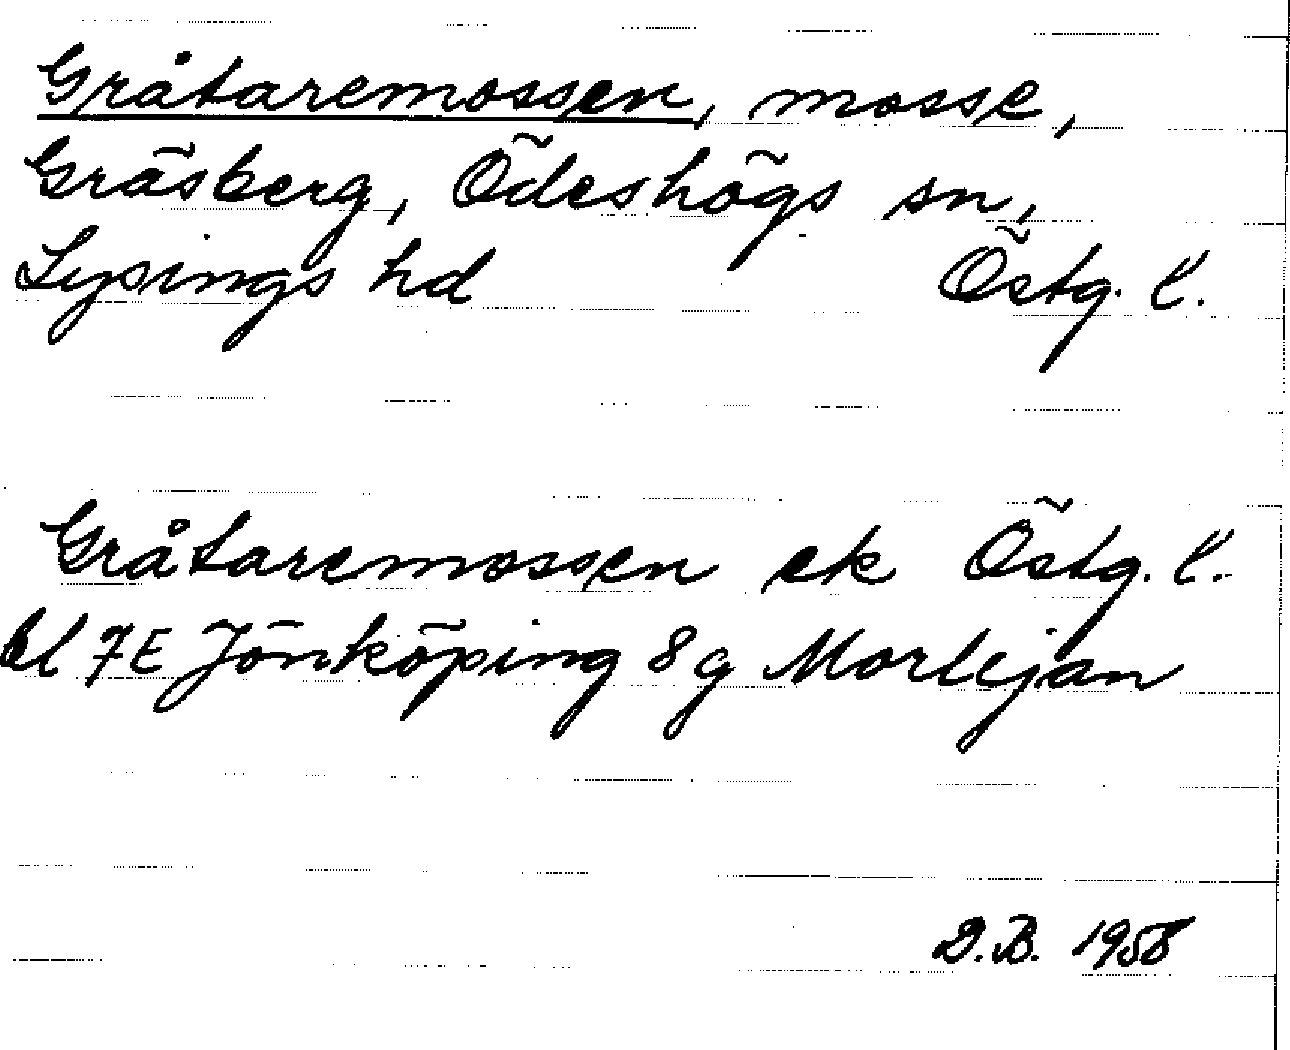 Gråtaremossen, mosse,
Gräsberg, Ödeshögs sn,
Lysings hd Östg. l.
Gråtaremossen ek Östg. l.
bl 7E Jönköping 8g Mortejan
D.B. 1958